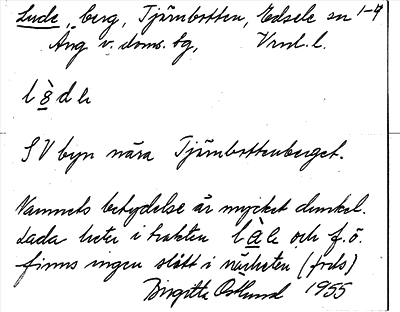 Lude, berg, Tjärnbotten, Edsele sn 1-4
Ång v. doms. tg, Vrnl. l.
SV byn nära Tjärnbottenberget.
Namnets betydelse är mycket dunkel.
lada heter i trakten làle och f.ö.
finns ingen slått i närheten (fods)
Birgitta Östlund 1955